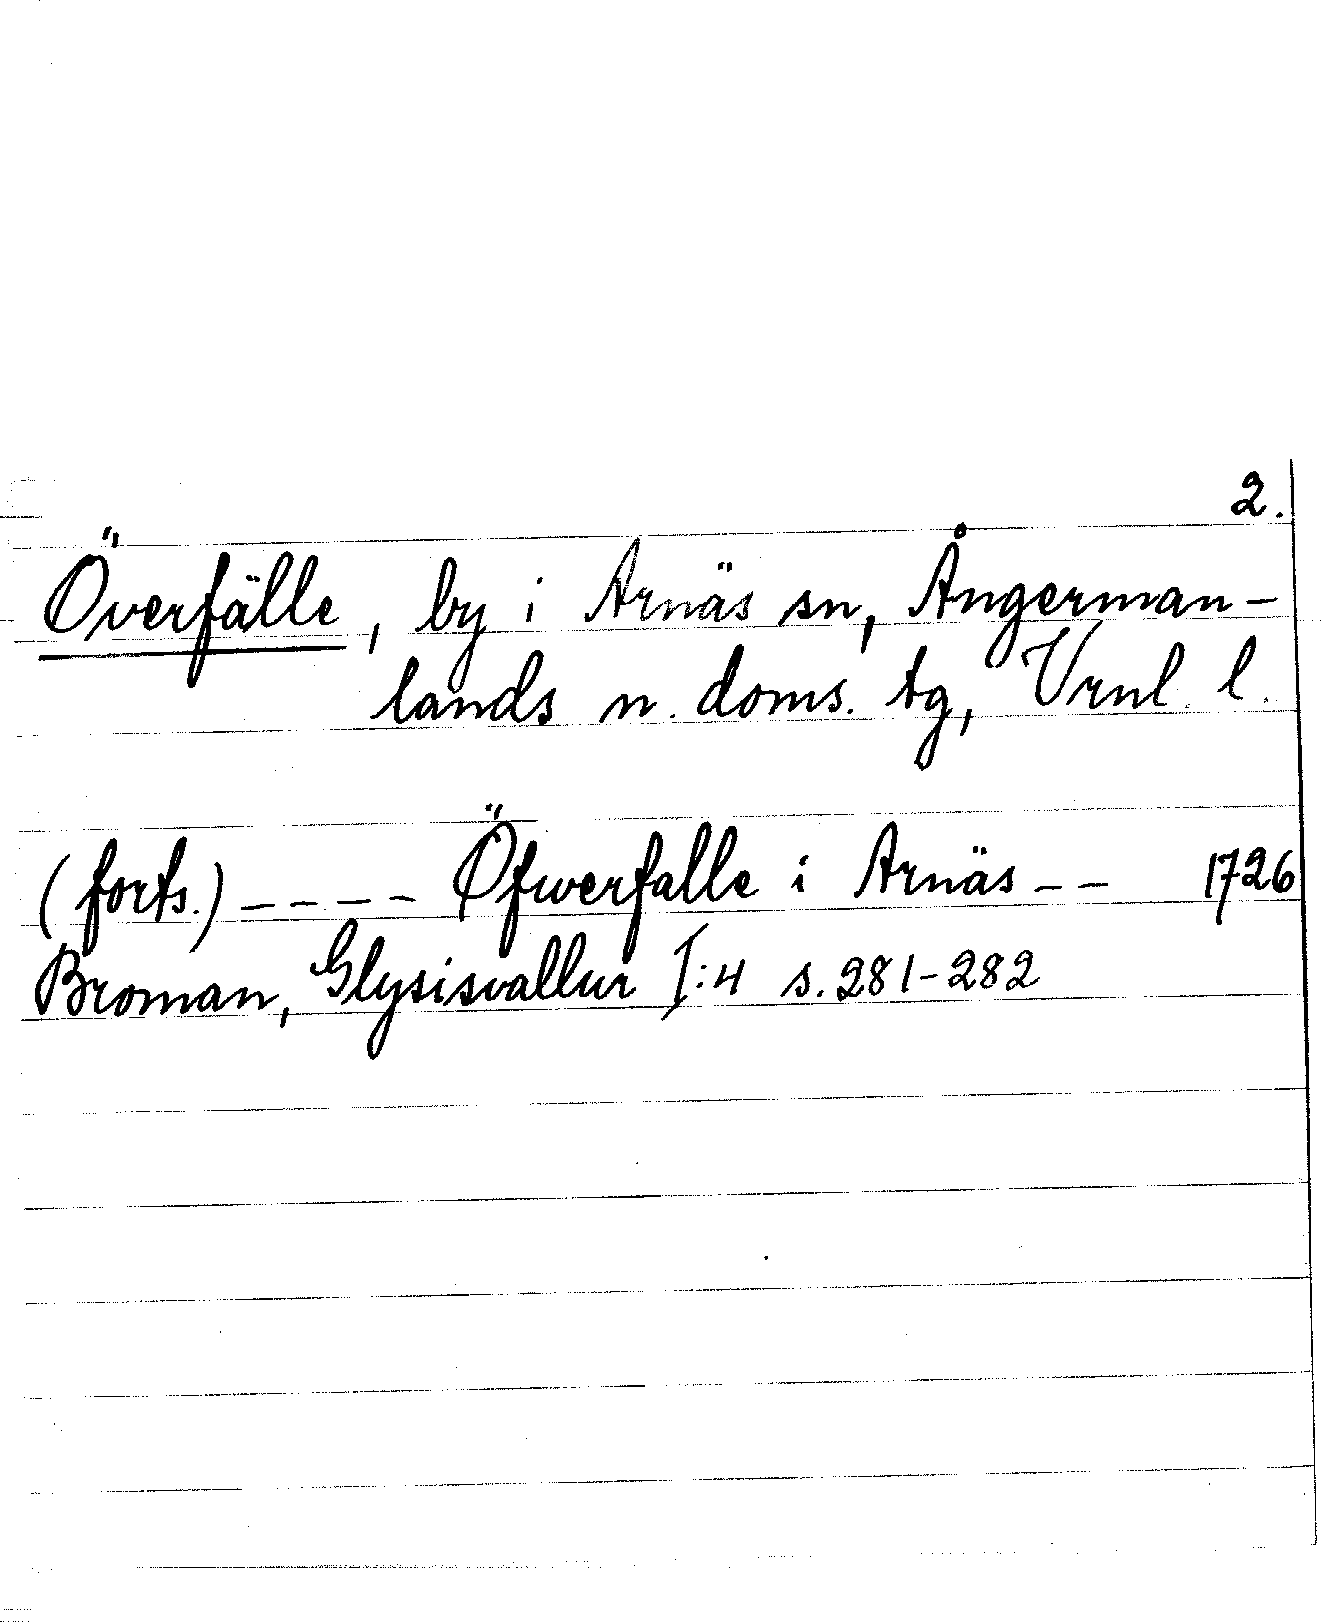 2.
Överfälle, by i Arnäs sn, Ångerman-
lands n. doms. tg, Vrnl. l.
(forts.) ---- Öfwerfalle i Arnäs -- 1726
Broman, Glysisvallur I:4 s. 281-282